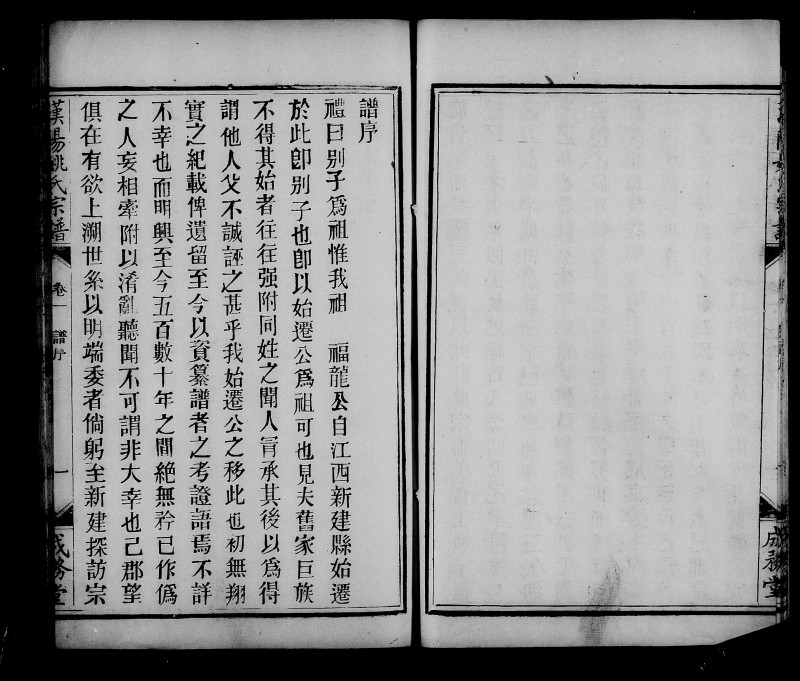 譜序
禮曰別子爲祖惟我祖　福龍公自江西新建縣始遷
於此卽別子也卽以始遷公爲祖可也見夫舊家巨族
不得其始者往往强附同姓之聞人冐承其後以爲得
謂他人父不誠誣之甚乎我始遷公之移此也初無翔
實之紀載俾遺留至今以資纂譜者之考證語焉不詳
不幸也而明興至今五百數十年之間絶無矜已作僞
之人妄相牽附以淆亂聽聞不可謂非大幸也己郡望
俱在有欲上溯世系以明端委者倘躬至新建探訪宗
漢陽姚氏宗譜
卷一
譜序
一
成務堂
成務堂